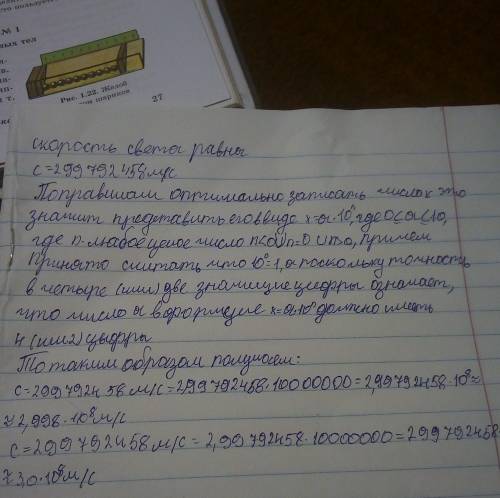 № 1
Рис. 1.22. Желоб
шариков
27
скорость света равны
с=299792458м/с
По правилам оптимально записать число к это
значит представить его в виде x=a·10ⁿ, где 0<a<10,
где n-любое целое число n<0Un=0Un>0, причем
принято считать что 10⁰=1, а поскольку точность
в четыре (или) две значищие цифры означает,
что число a в формуле x=a·10ⁿ должно иметь
4 (или 2) цыфры
То таким образом получаем:
с=299792458 м/с=2,99792458·100000000=2,99792458·10⁸≈
≈2,998·10⁸м/с
с=299792458м/с=2,99792458·10000000=299792458
≈3,0·10⁸м/с